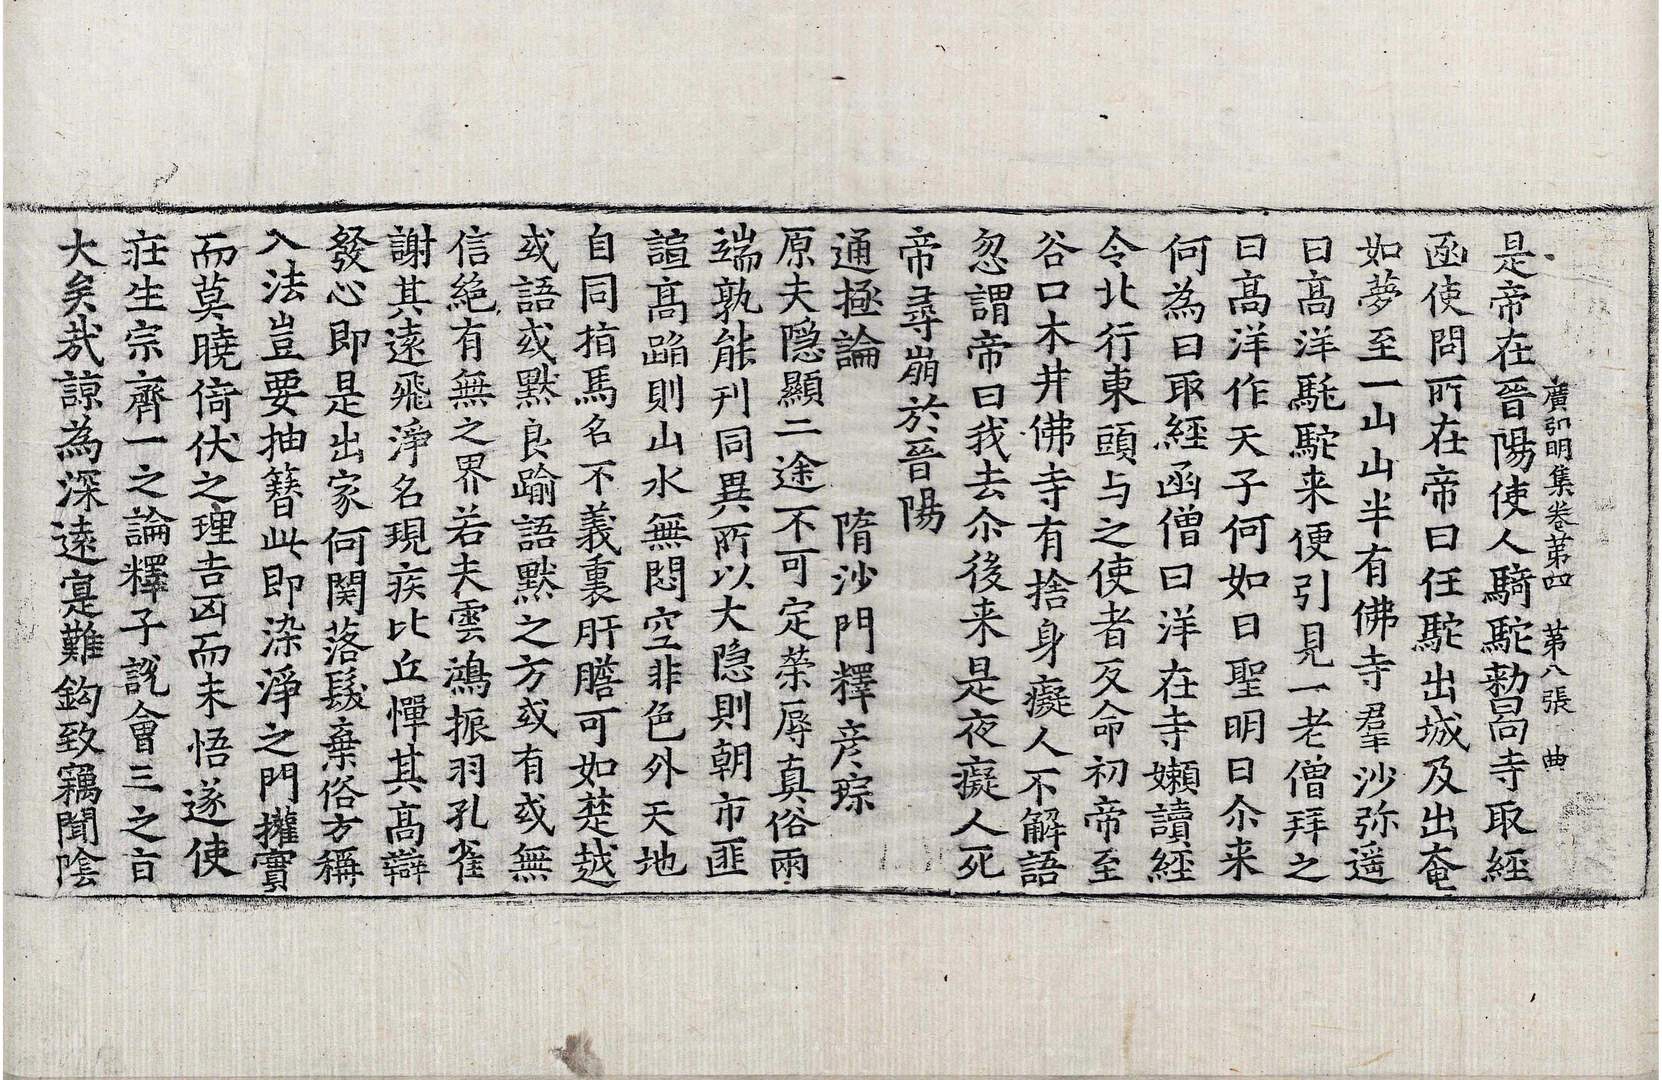 廣弘明集卷第四　第八張　曲
是帝在晉陽使人騎駝勑曰向寺取經
函使問所在帝曰任駝出城及出奄
如夢至一山山半有佛寺羣沙弥遥
曰髙洋駝駝来便引見一老僧拜之
曰髙洋作天子何如曰聖明曰尒来
何為曰取經函僧曰洋在寺嬾讀經
令北行東頭与之使者反命初帝至
谷口木井佛寺有捨身癡人不解語
忽謂帝曰我去尒後来是夜癡人死
帝尋崩於晉陽
通極論　　隋沙門釋彦琮
原夫隱顯二途不可定荣辱真俗兩
端孰能刋同異所以大隐則朝市匪
諠髙蹈則山水無悶空非色外天地
自同指馬名不義裏肝膽可如楚越
或語或默良踰語默之方或有或無
信絶有無之界若夫雲鴻振羽孔雀
謝其遠飛淨名現疾比丘憚其髙辯
發心即是出家何関落髮棄俗方稱
入法豈要抽簪此即染淨之門權實
而莫曉倚伏之理吉凶而未悟遂使
莊生宗齊一之論釋子説會三之旨
大矣哉諒為深遠寔難鈎致竊聞陰